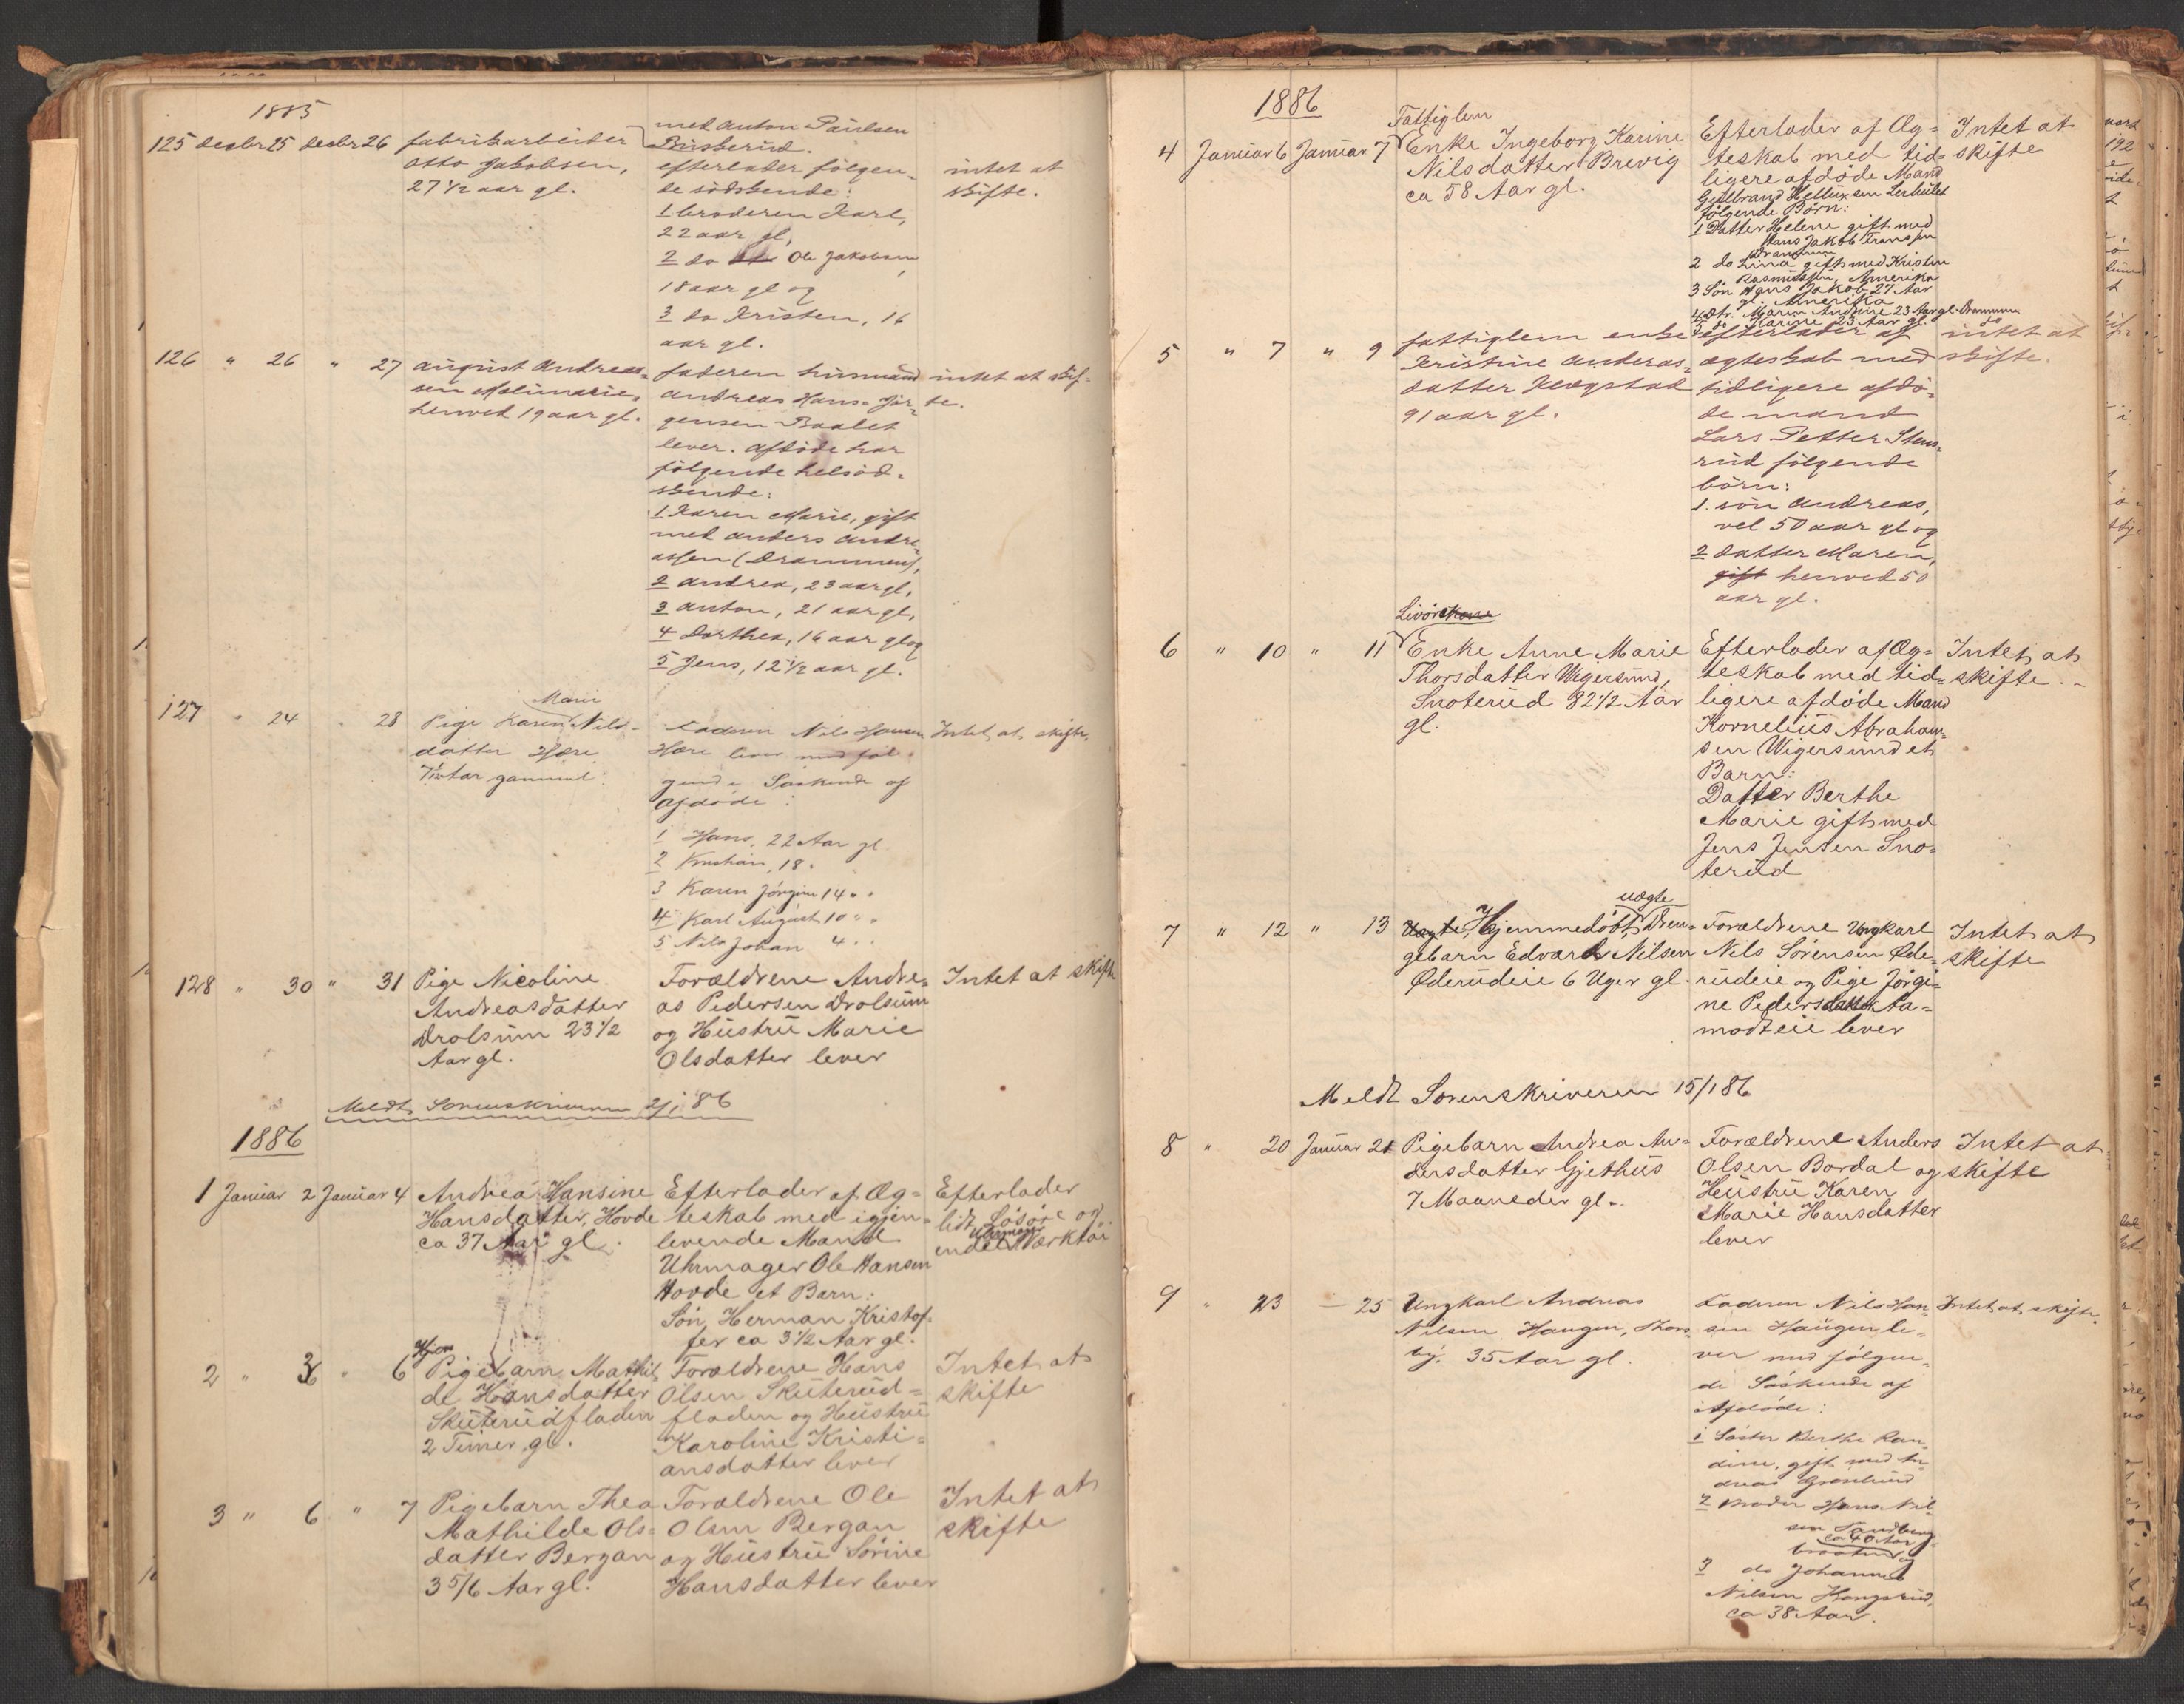 1885
125 decbr 25 decbr 26 fabrikarbeider
Otto Jakobsen,
27 1/2 aar gl.
met Anton Paulsen
Buskerud.
efterlader følgen-
de södskende:
1 broderen Karl,
22 aar gl,
2 do Ole Jakobsen,
18 aar gl og
3 do Kristen, 16
aar gl.
intet at
skifte.
126 " 26 " 27 august Andreas-
sen
henved 19 aar gl.
faderen husmand
Andreas Hans-Jør-
gensen Braatet
lever. Afdøde har
følgende helsöd-
skende:
1 Karen Marie, gift
med Anders Andre-
assen (Drammen),
2 Andrea, 23 aar gl,
3 Anton, 21 aar gl,
4 Dorthea, 16 aar gl og
5 Jens, 12 1/2 aar gl.
intet at skif-
te.
127 " 24 " 28 Pige Karen Marie Nils-
datter Hære
Aar gammel
Faderen Nils Hansen
Hære lever med føl-
gende Søskende af
Afdøde:
1 Hans, 22 Aar gl
2 Kristian, 18 "
3 Karen Jørgine 14 " "
4 Karl August 10 " "
5 Nils Johan 4 " "
Intet at skifte.
128 " 30 " 31 Pige Nicoline
Andreasdatter
Drolsum 23 1/2
Aar gl.
Forældrene Andre-
as Pedersen Drolsum
og Hustru Marie
Olsdatter lever
Intet at skifte
Meldt Sorenskriveren 2/1 86
1886
1 Januar 2 Januar 4 Andrea Hansine
Hansdatter, Hovde
ca 37 Aar gl.
Efterlader af Æg-
teskab med igjen-
levende Mand
Uhrmager Ole Hansen
Hovde et Barn:
Søn Herman Kristof-
fer ca 3 1/2 Aar gl.
Efterlader
lidt Løsøre og
endel Uhrmager Værktøi
2 " 3 " 6 Hjem
Pigebarn Mathil-
de Hansdatter
Skuterudfladen
2 Timer gl.
Forældrene Hans
Olsen Skuterud-
fladen og Hustru
Karoline Kristi-
ansdatter lever
Intet at
skifte
3 " 6 " 7 Pigebarn Thea
Mathilde Ols-
datter Bergan
3 5/6 Aar gl.
Forældrene Ole
Olsen Bergan
og Hustru Sørine
Hansdatter lever
Intet at
skifte
1886
4 Januar 6 Januar 7 Fattiglem
Enke Ingeborg Karine
Nilsdatter Brevig
ca 58 Aar gl.
Efterlader af Æg-
teskab med tid-
ligere afdøde Mand
Gulbrand Helliksen
følgende Børn:
1 Datter Helene gift med
Hans Jakob Fransen
Drammen
2 do Lina gift med Kristen
Rasmussen, Amerika
3 Søn Hans Jakob 27 Aar
gl. Amerika
4 Dtr. Maren Andrine 23 Aar gl. Drammen
5 do Karine 23 Aar gl. do
Intet at
skifte
5 " 7 " 9 fattiglem enke
Kristine Anderas-
datter Klægstad
91 aar gl.
efterlader af
ægteskab med
tidligere afdö-
de mand
Lars Petter Stens-
rud følgende
börn:
1. sön Andreas,
vel 50 aar gl og
2 datter Maren,
gift henved 50
aar gl.
intet at
skifte.
6 " 10 " 11 Enke Anne Marie
Thorsdatter Wigersund,
Snoterud 82 1/2 Aar
gl.
Efterlader af Æg-
teskab med tid-
ligere afdøde Mand
Kornelius Abraham-
sen Wigersund et
Barn:
Datter Berthe
Marie gift med
Jens Jensen Sno-
terud
Intet at
skifte.-
7 " 12 " 13 Uægte, Hjemmedøbt, uægte Dren-
gebarn Edvard Nilsen
Øderudeie 6 Uger gl.
Forældrene Ungkarl
Nils Sørensen Øde-
rudeie og Pige Jørgi-
ne Pedersdatter Aa-
modteie lever
Intet at
skifte
Meldt Sorenskriveren 15/1 86
8 " 20 Januar 21 Pigebarn Andrea An-
dersdatter Gjethus
7 Maaneder gl.
Forældrene Anders
Olsen Bordal og
Hustru Karen
Marie Hansdatter
lever
Intet at
skifte
9 " 23 — 25 Ungkarl Andreas
Nilsen Haugen, Thors-
by. 35 Aar gl.
Faderen Nils Han-
sen Haugen le-
ver med følgen-
de Søskende af
Afdøde:
1 Søster Berthe Ran-
dine, gift med An-
dreas Grønlund
2 Broder Hans Nil-
sen Sandberg
ca 40 Aar og
3 do Johannes
Nilsen Haugsrud,
ca 38 Aar.
Intet at skifte.